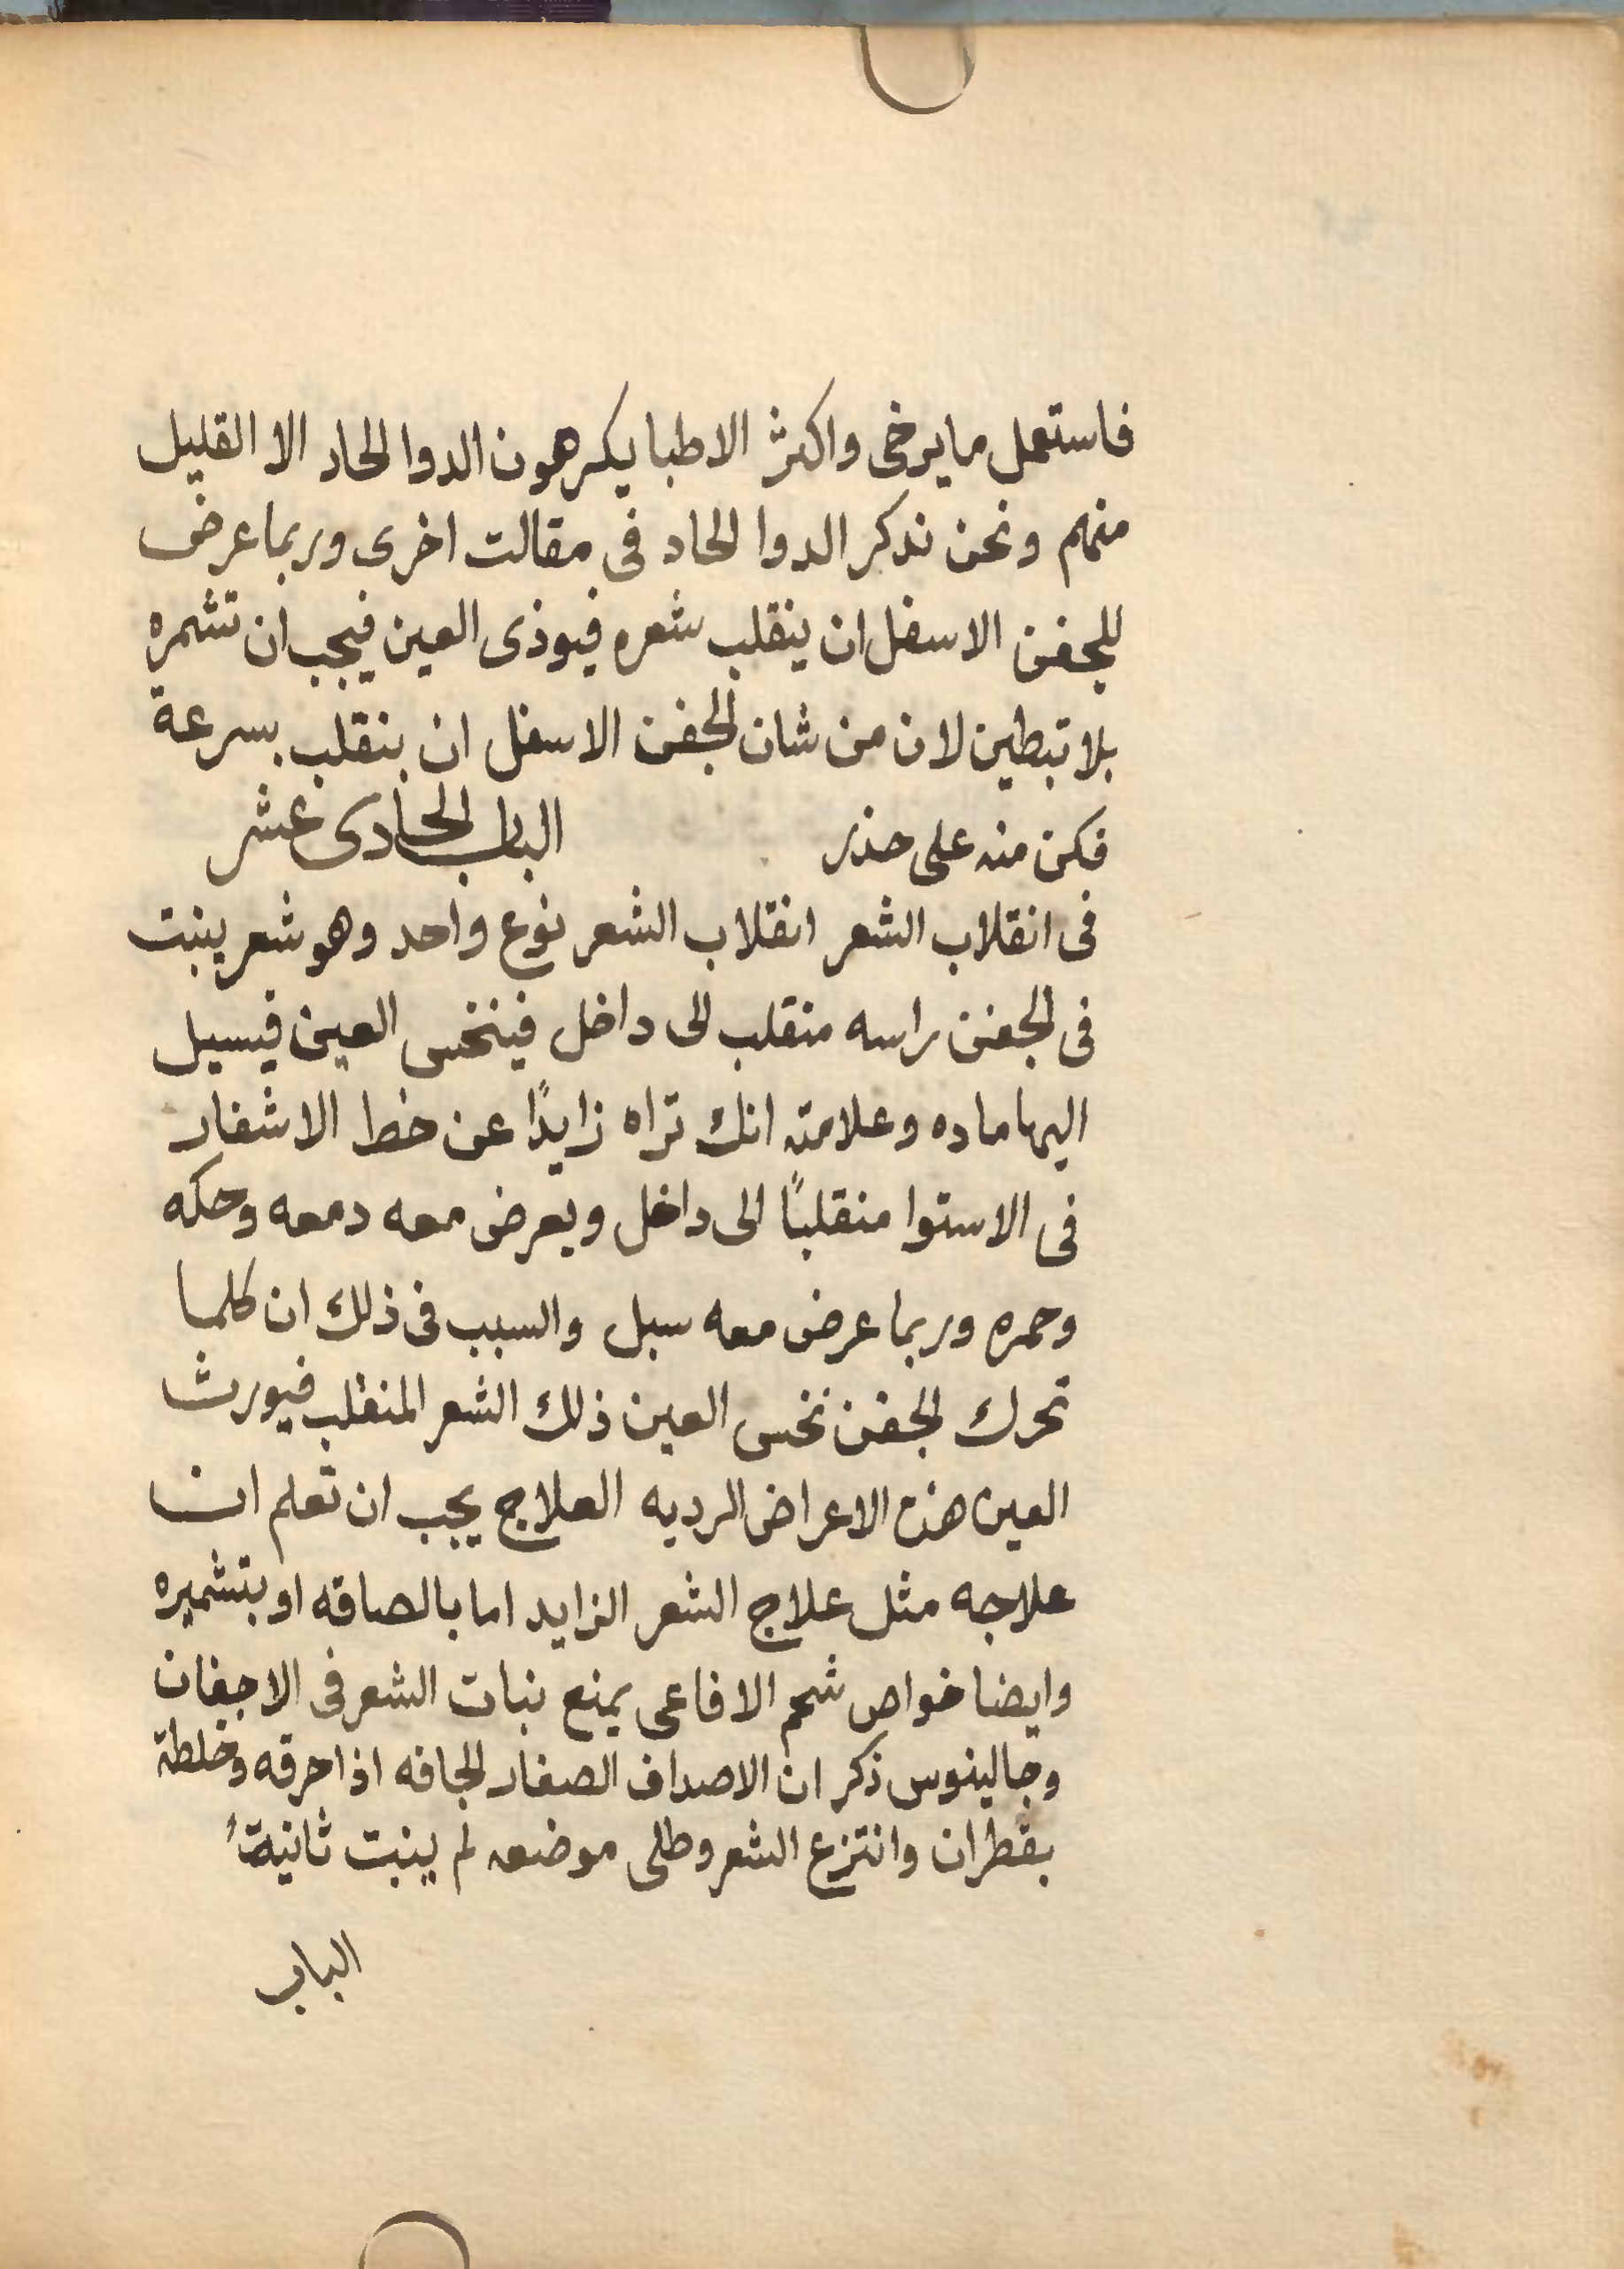 فاستعمل ما يرخى واكثر الاطبا يكرهون الدوا الحاد الا القليل
منهم ونحن نذكر الدوا الحاد فى مقالت اخرى وربما عرض
للجفن الاسفل ان ينقلب شعره فيوذى العين فيجب ان تشمره
بلا تبطين لان من شان الجفن الاسفل ان ينقلب بسرعة
فكن منه على حذر الباب الحادى عشر
فى انقلاب الشعر انقلاب الشعر نوع واحد وهو شعر ينبت
فى الجفن راسه منقلب الى داخل فينخس العين فيسيل
اليها ماده وعلامته انك تراه زايدًا عن خط الاشفار
فى الاستوا منقلبًا الى داخل ويعرض معه دمعه وحكه
وحمره وربما عرض معه سبل والسبب فى ذلك ان كلما
تحرك الجفن نخس العين ذلك الشعر المنقلب فيورث
العين هذه الاعراض الرديه العلاج يجب ان تعلم ان
علاجه مثل علاج الشعر الزايد اما بالصاقه او بتشميره
وايضا خواص شحم الافاعى يمنع نبات الشعر فى الاجفان
وجالينوس ذكر ان الاصداف الصغار الجافه اذا حرقه وخلطة
بقطران وانتزع الشعر وطلى موضعه لم ينبت ثانية
الباب